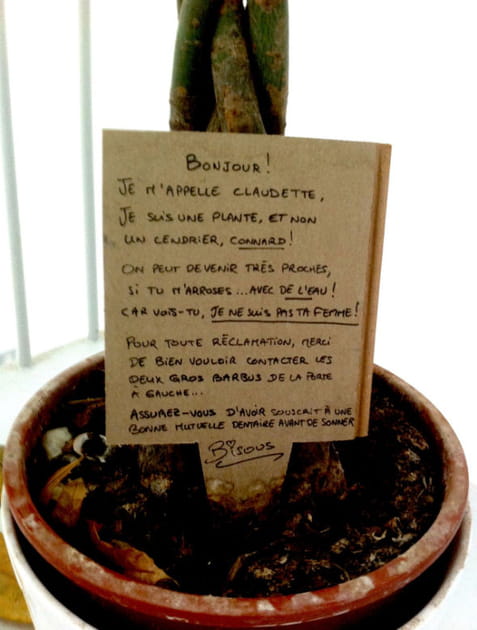 BONJOUR!
JE M'APPELLE CLAUDETTE,
JE SUIS UNE PLANTE, ET NON
UN CENDRIER, CONNARD!
ON PEUT DEVENIR TRÈS PROCHES,
SI TU M'ARROSES...AVEC DE L'EAU!
CAR VOIS-TU, JE NE SUIS PAS TA FEMME!
POUR TOUTE RÉCLAMATION, MERCI
DE BIEN VOULOIR CONTACTER LES
DEUX GROS BARBUS DE LA PORTE
À GAUCHE...
ASSUREZ-VOUS D'AVOIR SOUSCRIT À UNE
BONNE MUTUELLE DENTAIRE AVANT DE SONNER
BISOUS